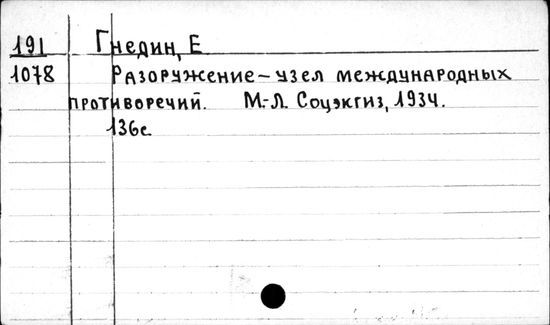 191 Гнедин, Е
1078 Разоружение – узел международных
противоречий. М.-Л. Соцэкгиз, 1934.
136с